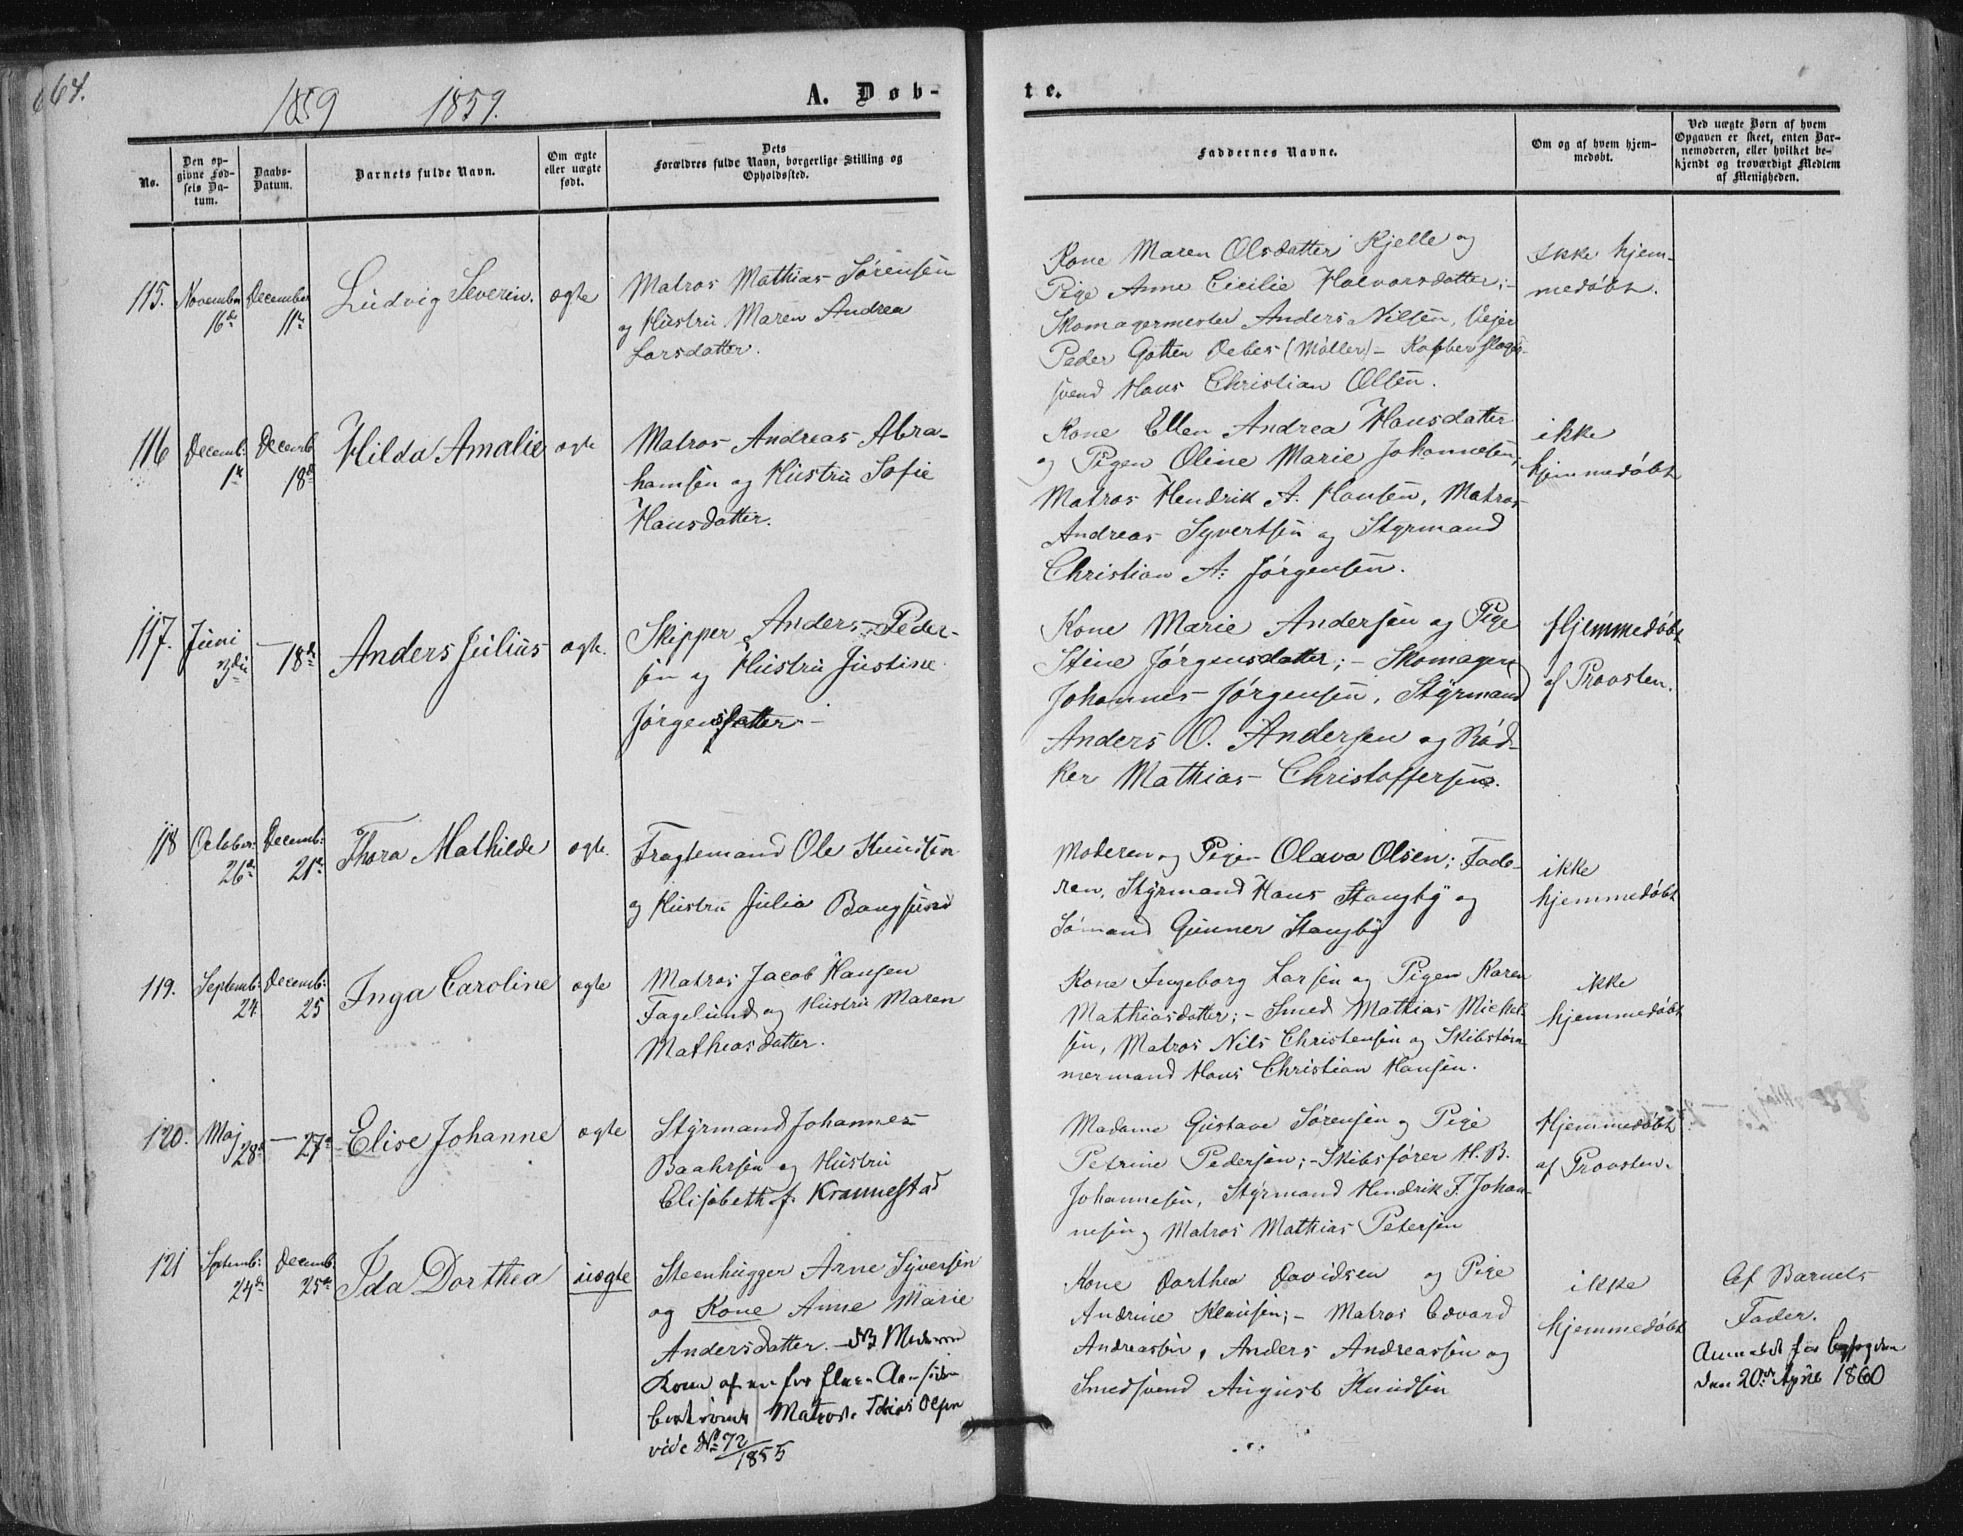 664.
1859 1859.
A. Døb-
te.
No.
Den op-
givne Fød-
sels Da-
tum.
Daabs-
Datum.
Barnets fulde Navn.
Om ægte
eller uægte
født.
Dets
Forældres fulde Navn, borgerlige Stilling og
Opholdssted.
Faddernes Navne.
Om og af hvem hjem-
medøbt.
Ved uægte Børn af hvem
Opgaven er skeet, enten Bar-
nemoderen, eller hvilket be-
kjendt og troværdigt Medlem
af Menigheden.
115.
November
16de
December
11te
Ludvig Severin.
ægte
Matros Mathias Sørensen
og Hustru Maren Andrea
Larsdatter.
Kone Maren Olsdatter Kjelle og
Pige Anne Cicilie Halvorsdatter;-
Skomagermester Anders Nilsen, Vejer
Peder Gotten Debes (Møller) - Kobberslager-
svend Hans Christian Olsen.
Ikke hjem-
medøbt.
116
Decemb:
1te
Decemb
18de
Hilda Amalie
ægte
Matros Andreas Abra-
hamsen og Hustru Sofie
Hansdatter.
Kone Ellen Andrea Hansdatter
og Pigen Oline Marie Johannesen;
Matros Hendrik A. Hansen, Matros
Andreas Syvertsen og Styrmand
Christian A. Jørgensen.
ikke
hjemmedøbt
117.
Juni
3die
— 18de
Anders Julius
ægte.
Skipper Anders Peder-
sen og Hustru Justine
Jørgensdatter -
Kone Marie Andersen og Pige
Stine Jørgensdatter; - Skomager
Johannes Jørgensen, Styrmand
Anders O. Andersen og Bød-
ker Mathias Christoffersen.
Hjemmedøbt
af Provsten.
118
October
26de
Decemb:
21de
Thora Mathilde
ægte.
Fragtemand Ole Knudsen
og Hustru Julia Bangsund
Moderen og Pigen Olava Olsen; Fade-
ren, Styrmand Hans Stangby og
Sømand Gunner Stangby
ikke
hjemmedøbt
119.
Septemb:
24
Decemb:
25
Inga Caroline
ægte
Matros Jacob Hansen
Fagelund og Hustru Maren
Mathiasdatter.
Kone Ingeborg Larsen og Pigen Karen
Mathiasdatter; - Smed Mathias Mickel-
sen, Matros Nils Christensen og Skibstøm-
mermand Hans Christian Hansen.
ikke
hjemmedøbt
120.
Maj
28de
— 27de
Elise Johanne
ægte
Styrmand Johannes
Baahrsen og Hustru
Elisabeth f. Kronnestad
Madame Gustava Sørensen og Pige
Petrine Pedersen; - Skibsfører H. B.
Johannesen, Styrmand Hendrik F. Johan-
nesen og Matros Mathias Petersen
Hjemmedøbt
af Provsten.
121
Septemb:
24de
Decemb.
25de
Ida Dorthea
uægte
Steenhugger Arne Syversen
og Kone Anne Marie
Andersdatter. - NB Moderen
Kone af en for fleere Aar siden
bortrømt Matros Tobias Olsen
vide No 72/1855
Kone Dorthea Davidsen og Pige
Andrine Klausen; - Matros Edvard
Andreassen, Anders Andreassen og
Smedsvend August Knudsen
ikke
hjemmedøbt
Af Barnets
Fader.
Anmeldt for
den 20de April 1860